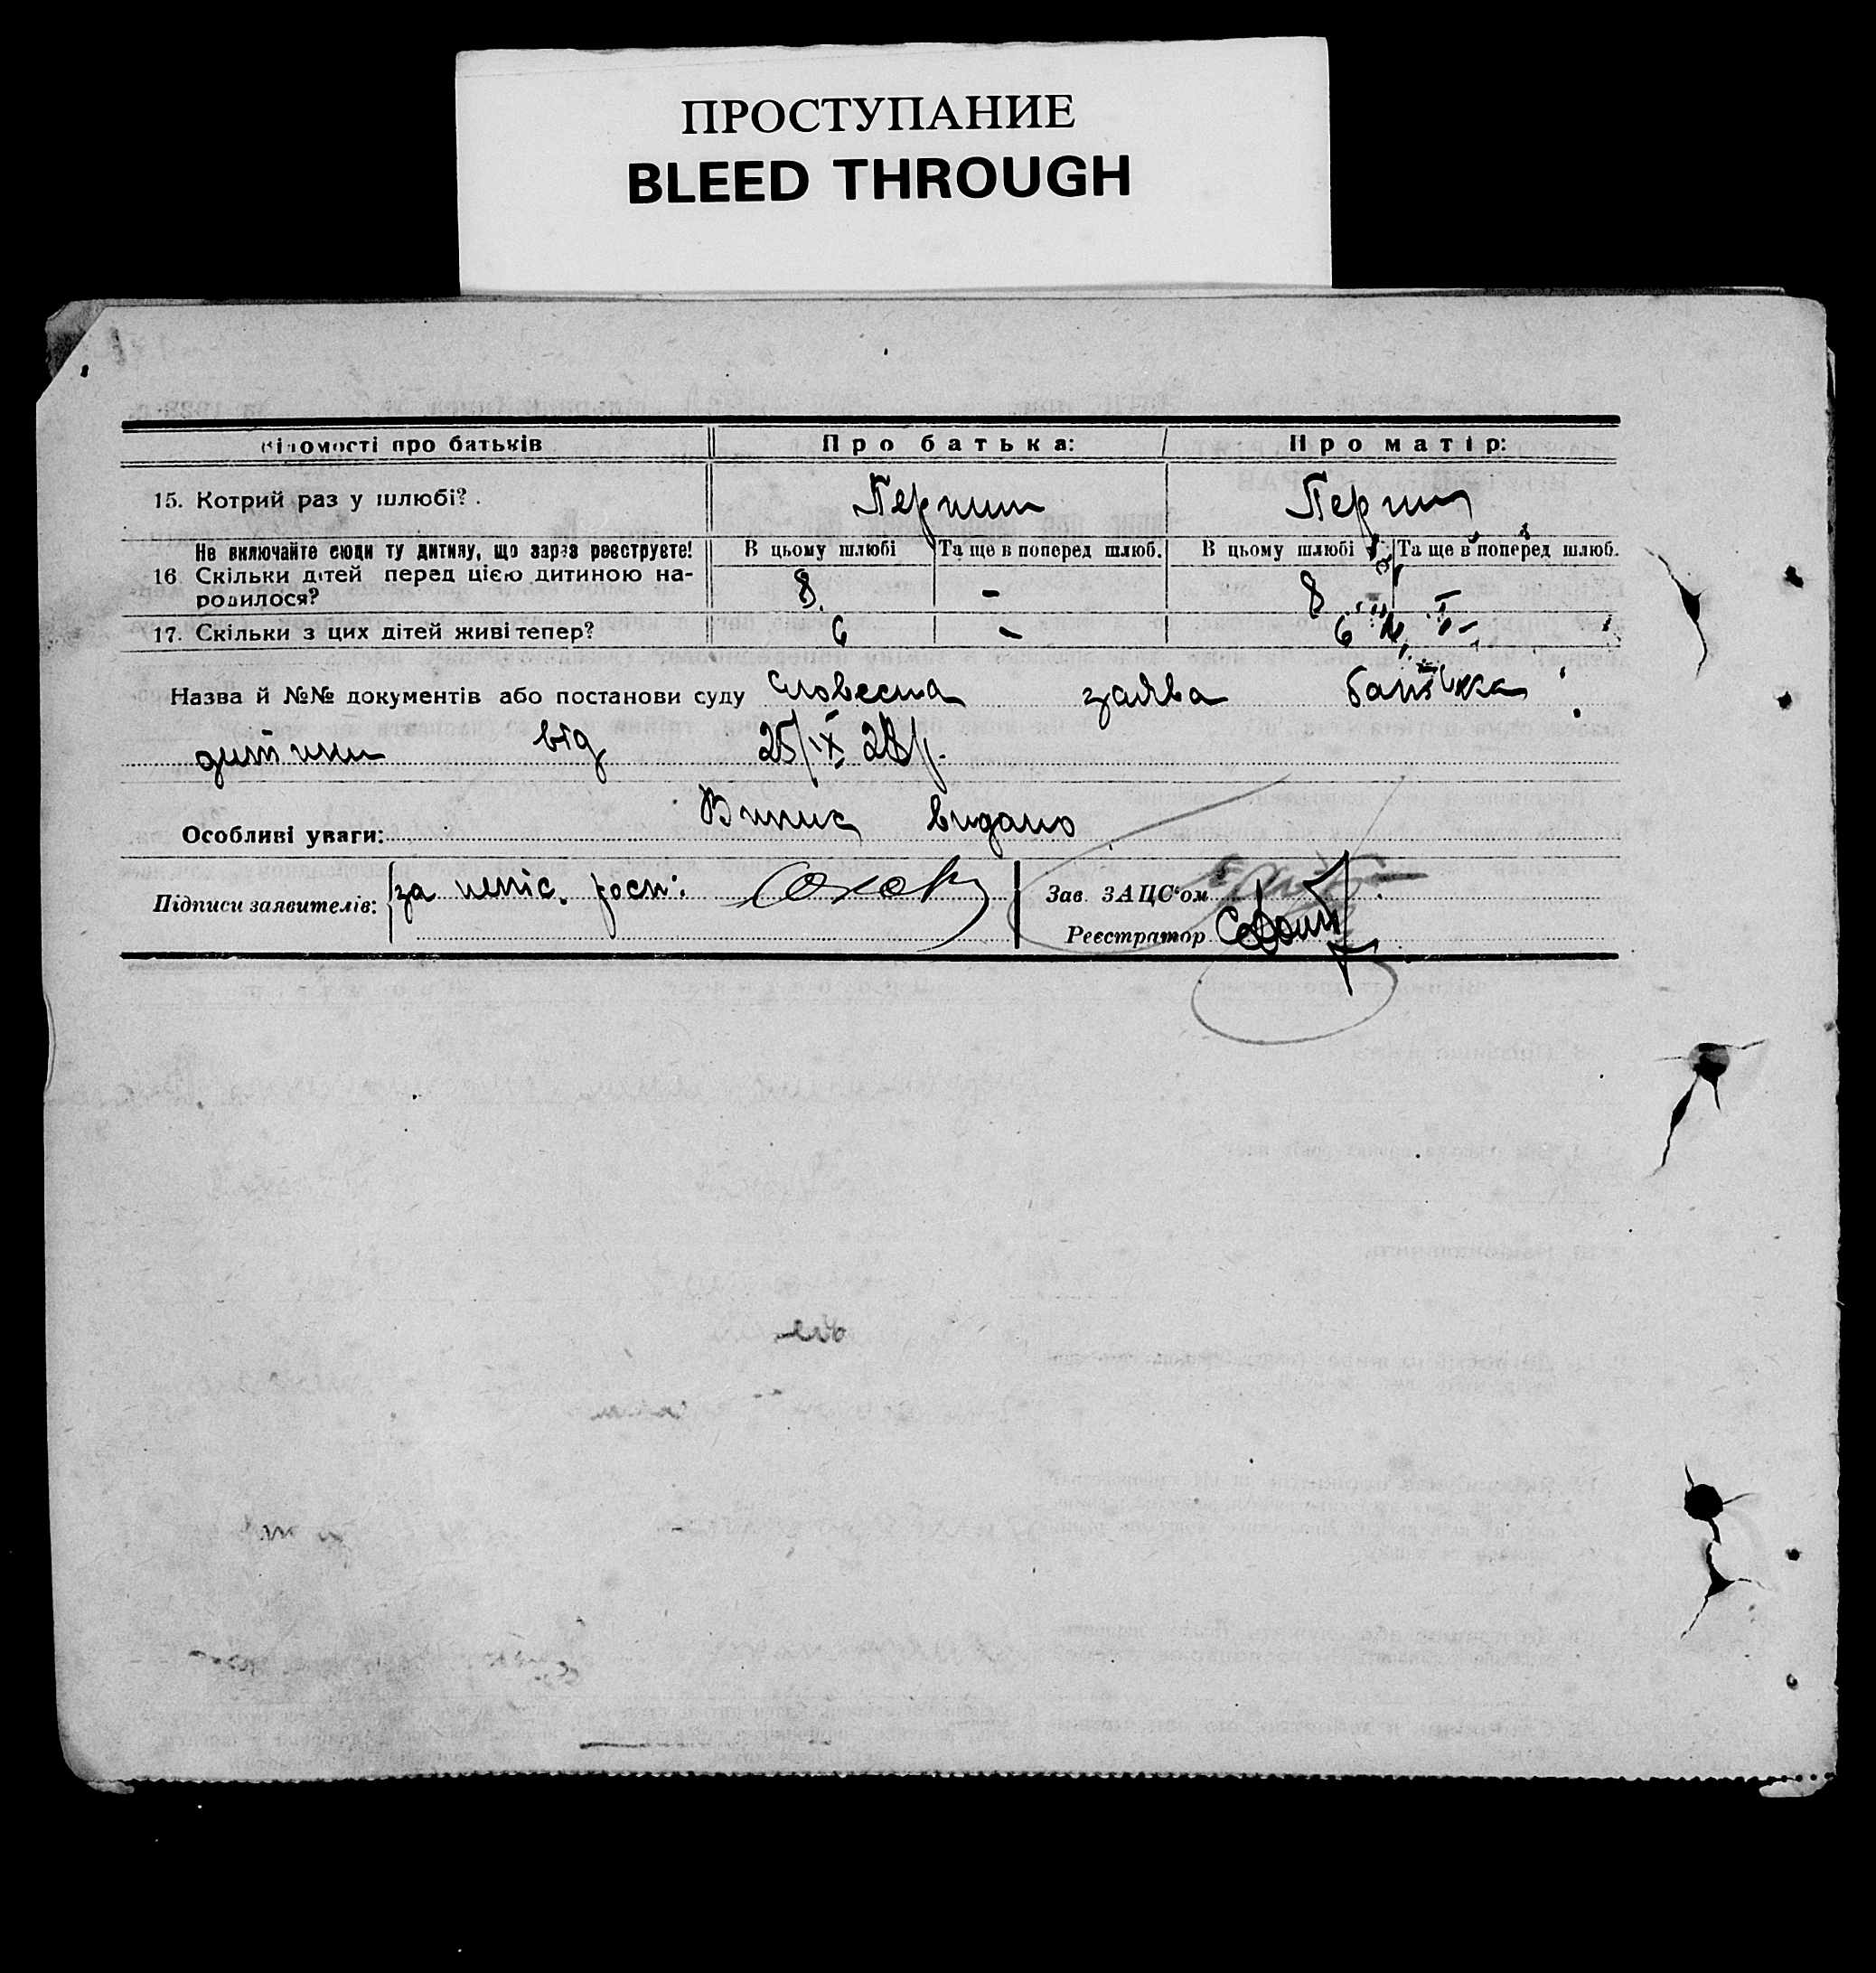 ПРОСТУПАНИЕ
BLEED THROUGH
Відомості про батьків Про батька: Про матір:
15. Котрий раз у шлюбі? Перший Перший
Не включайте сюди ту дитину, що зараз реєструєте! В цьому шлюбі Та ще в поперед шлюб. В цьому шлюбі Та ще в поперед шлюб.
16 Скільки дітей перед цією дитиною на-
родилося? 8 - 8 -
17. Скільки з цих дітей живі тепер? 6 - 6 -
Назва й №№ документів або постанови суду Словесна заява батька
дитини від 25/IX 28 р.
Особливі уваги: Випис видано
Підписи заявителів: за непіс. росп.
Зав. ЗАЦС'ом
Реєстратор